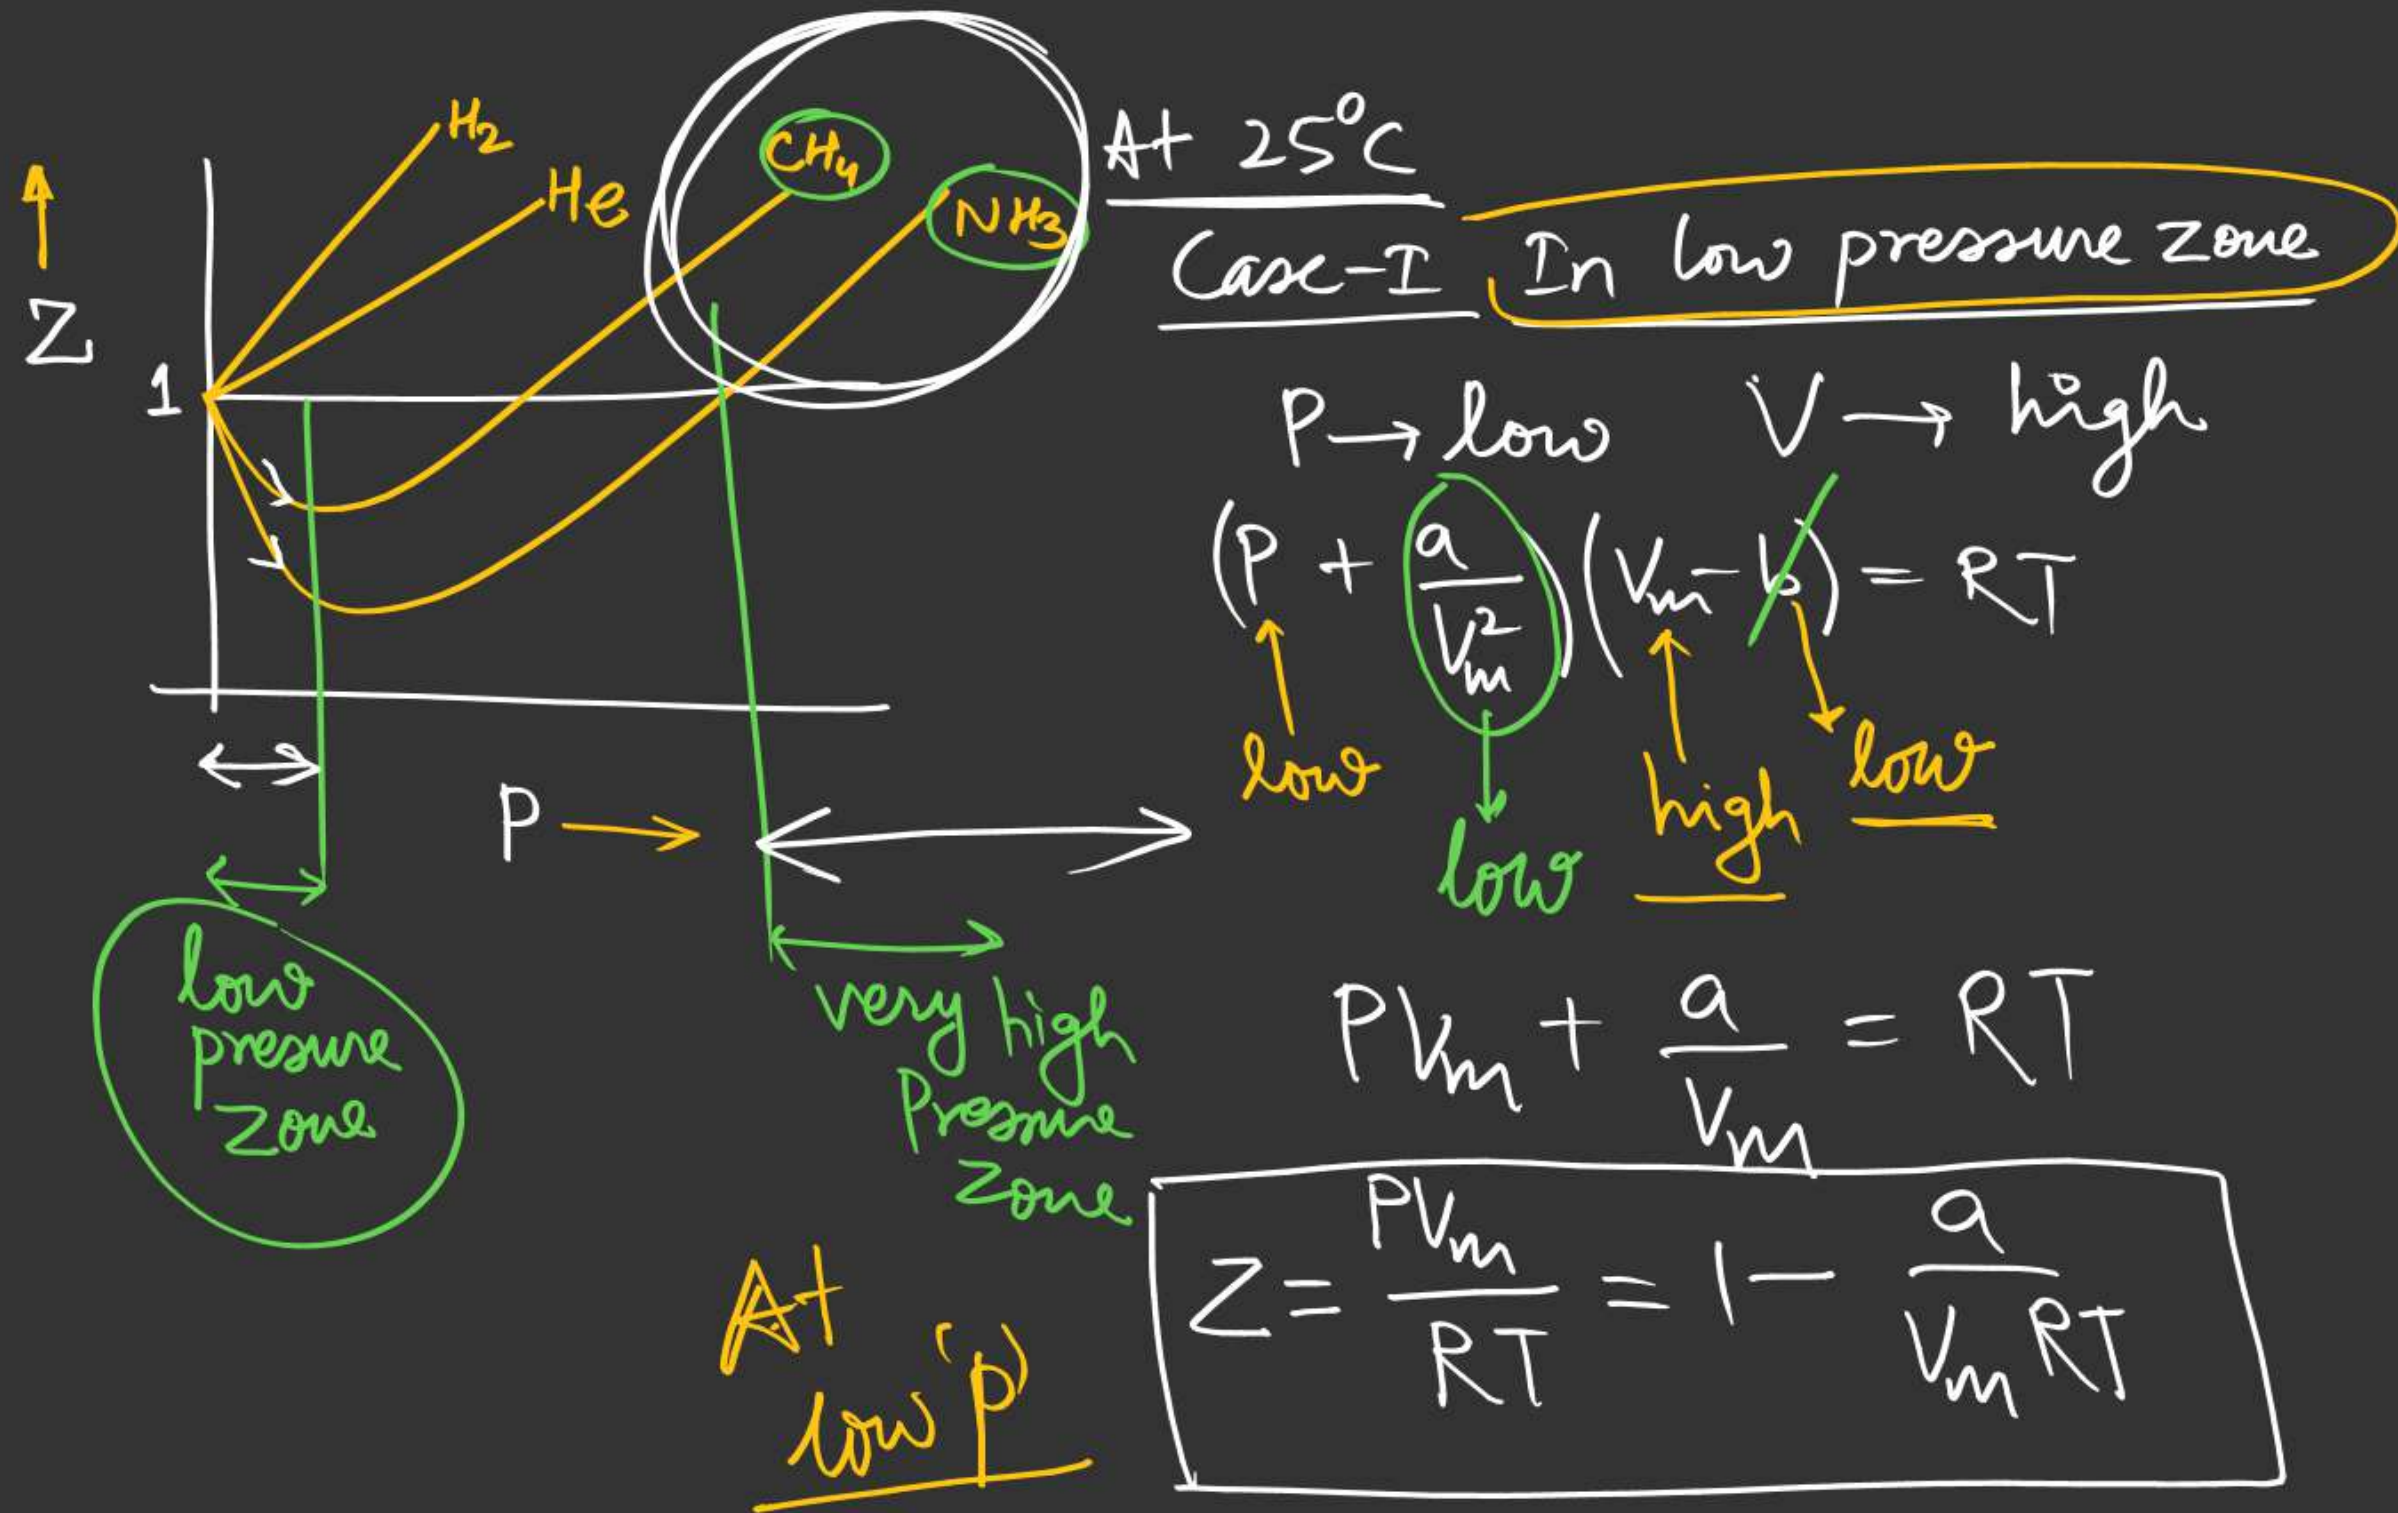 H₂
He
CH₄
NH₃
Z
1
P →
low
presure
zone
very high
Pressure
zone
At 25°C
Case-I In low pressure zone
P → low V → high
(P + a/V²m) (Vm - b) = RT
low
low
high
low
PVm + a/Vm = RT
At
low 'P'
Z = PVm/RT = 1 - a/VmRT